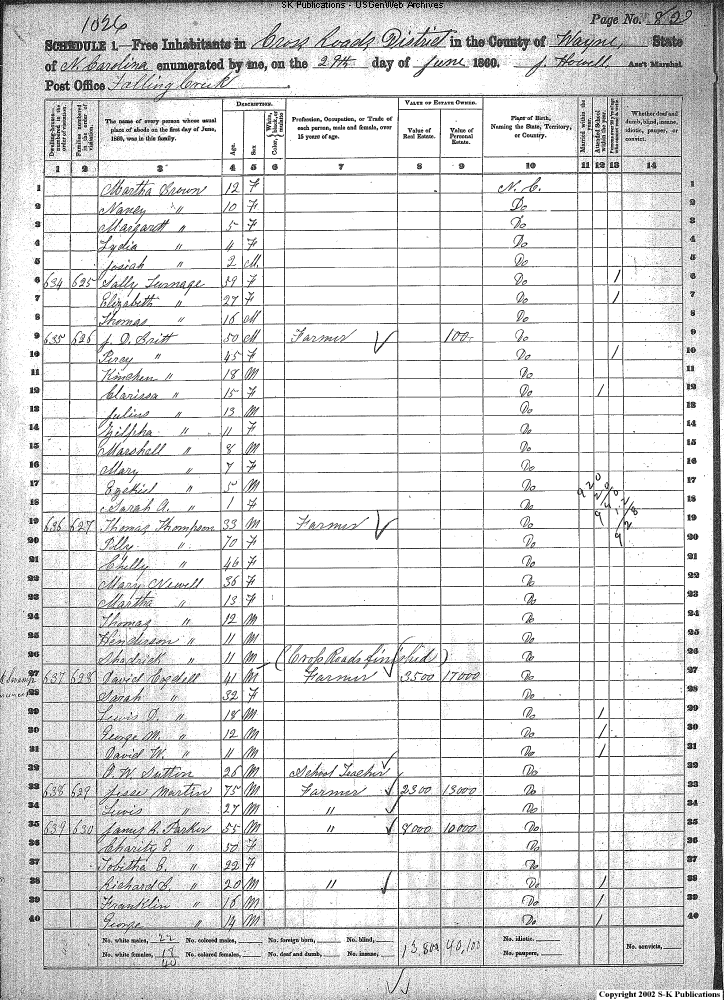 SK Publications - USGenWeb Archives
1026
Page No. 82
SCHEDULE 1.—Free Inhabitants in Cross Roads District in the County of Wayne, State
of N. Carolina enumerated by me, on the 29th day of June 1860. J. Howell, Ass't Marshal
Post Office Falling Creek
Dwelling-houses numbered in the order of visitation.
Families numbered in the order of visitation.
The name of every person whose usual place of abode on the first day of June, 1860, was in this family.
DESCRIPTION.
Age.
Sex
Color, White, black, or mulatto
Profession, Occupation, or Trade of each person, male and female, over 15 years of age.
VALUE OF ESTATE OWNED.
Value of Real Estate.
Value of Personal Estate.
Place of Birth, Naming the State, Territory, or Country.
Married within the year.
Attended School within the year.
Whether deaf and dumb, blind, insane, idiotic, pauper, or convict.
1 2 3 4 5 6 7 8 9 10 11 12 13 14
1 Martha Crown 12 F N. C. 1
2 Nancy " 10 F Do 2
3 Margarett " 5 F Do 3
4 Lydia " 4 F Do 4
5 Josiah " 2 M Do 5
6 634 625 Sally Turnage 59 F Do / 6
7 Elizabeth " 27 F Do / 7
8 Thomas " 16 M Do 8
9 635 626 J. D. Britt 50 M Farmer 100 Do 9
10 Percy " 45 F Do / 10
11 Kinchen " 18 M Do 11
12 Clarissa " 15 F Do / 12
13 Julius " 13 M Do 13
14 Zilpha " 11 F Do 14
15 Marshall " 8 M Do 15
16 Mary " 7 F Do 16
17 Ezekiel " 5 M Do 17
18 Sarah A. " 1 F Do 18
19 636 627 Thomas Thompson 33 M Farmer Do 19
20 Pilly " 70 F Do 20
21 Chelly " 46 F Do 21
22 Mary Newell 36 F Do 22
23 Martha " 13 F Do 23
24 Thomas " 12 M Do 24
25 Henderson " 11 M Do 25
26 Shadrick " 11 M (Cross Roads finished) Do 26
27 637 628 David Cogdell 41 M Farmer 3500 17000 Do 27
28 Sarah " 32 F Do 28
29 Lewis D. " 18 M Do / 29
30 George M. " 12 M Do / 30
31 David W. " 11 M Do / 31
32 O. W. Sutton 26 M School Teacher Do 32
33 638 629 Jesse Martin 75 M Farmer 2300 13000 Do 33
34 Lewis " 27 M " Do 34
35 639 630 James R. Parker 55 M " 8000 10000 Do 35
36 Charity E. " 50 F Do 36
37 Tobitha E. " 22 F Do 37
38 Richard L. " 20 M " Do / 38
39 Franklin " 16 M Do / 39
40 George " 14 M Do / 40
No. white males, 22 No. colored males, No. foreign born, No. blind, 13,800 40,100 No. idiotic, No. convicts,
No. white females, 18 No. colored females, No. deaf and dumb, No. insane, No. paupers,
40
Copyright 2002 S-K Publications